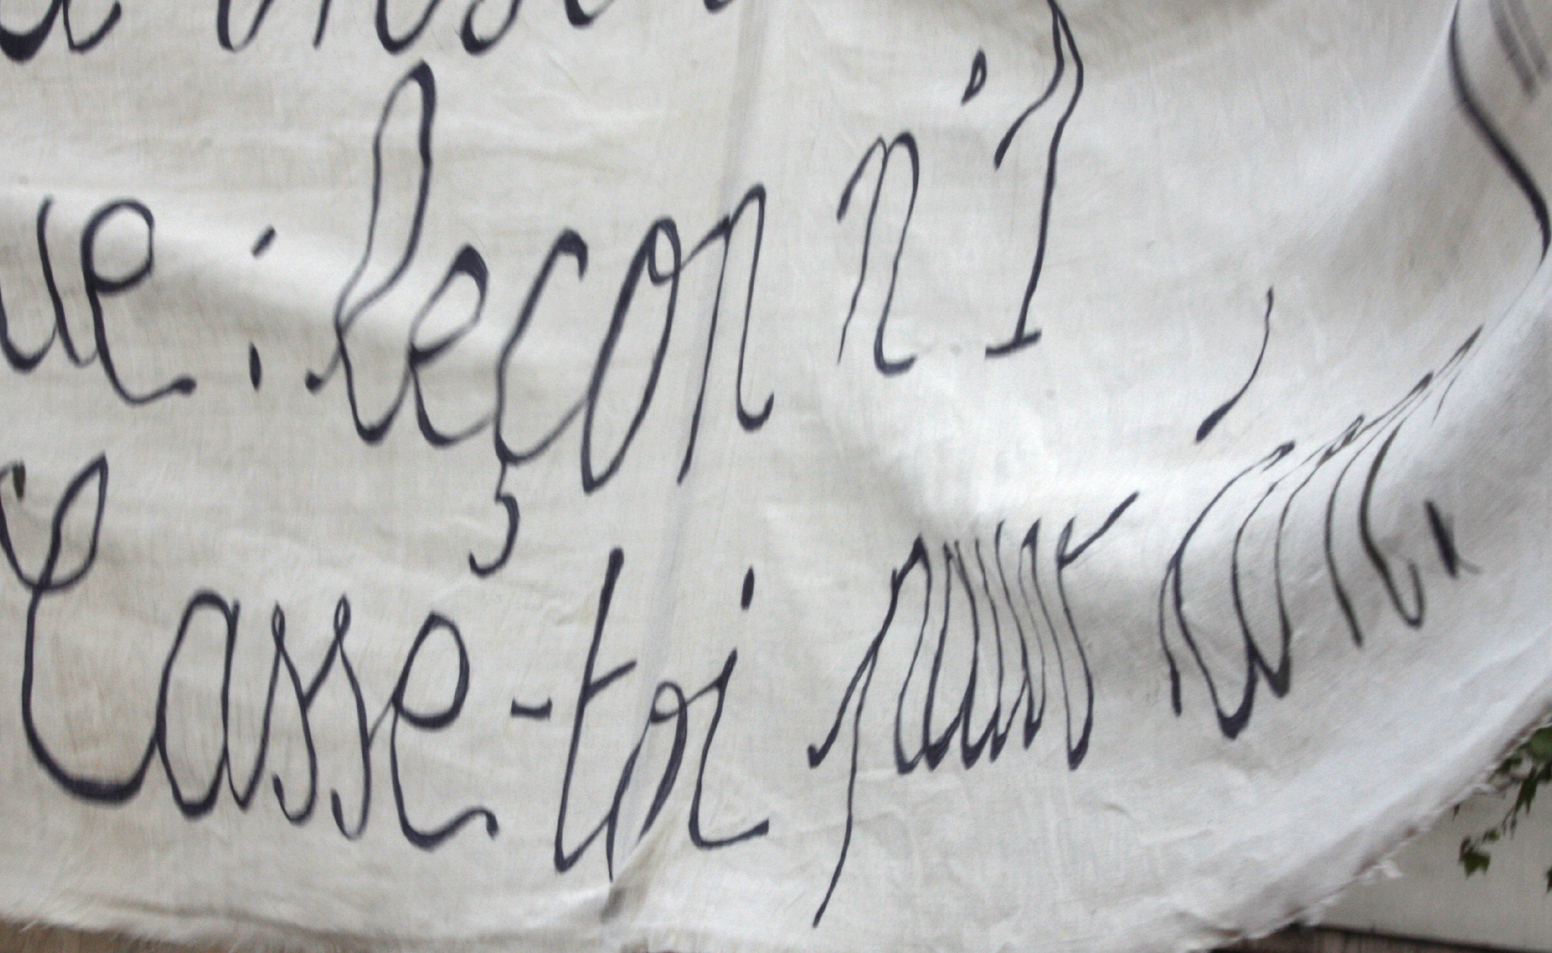 ue : leçon n°1
Casse-toi pauv' con.